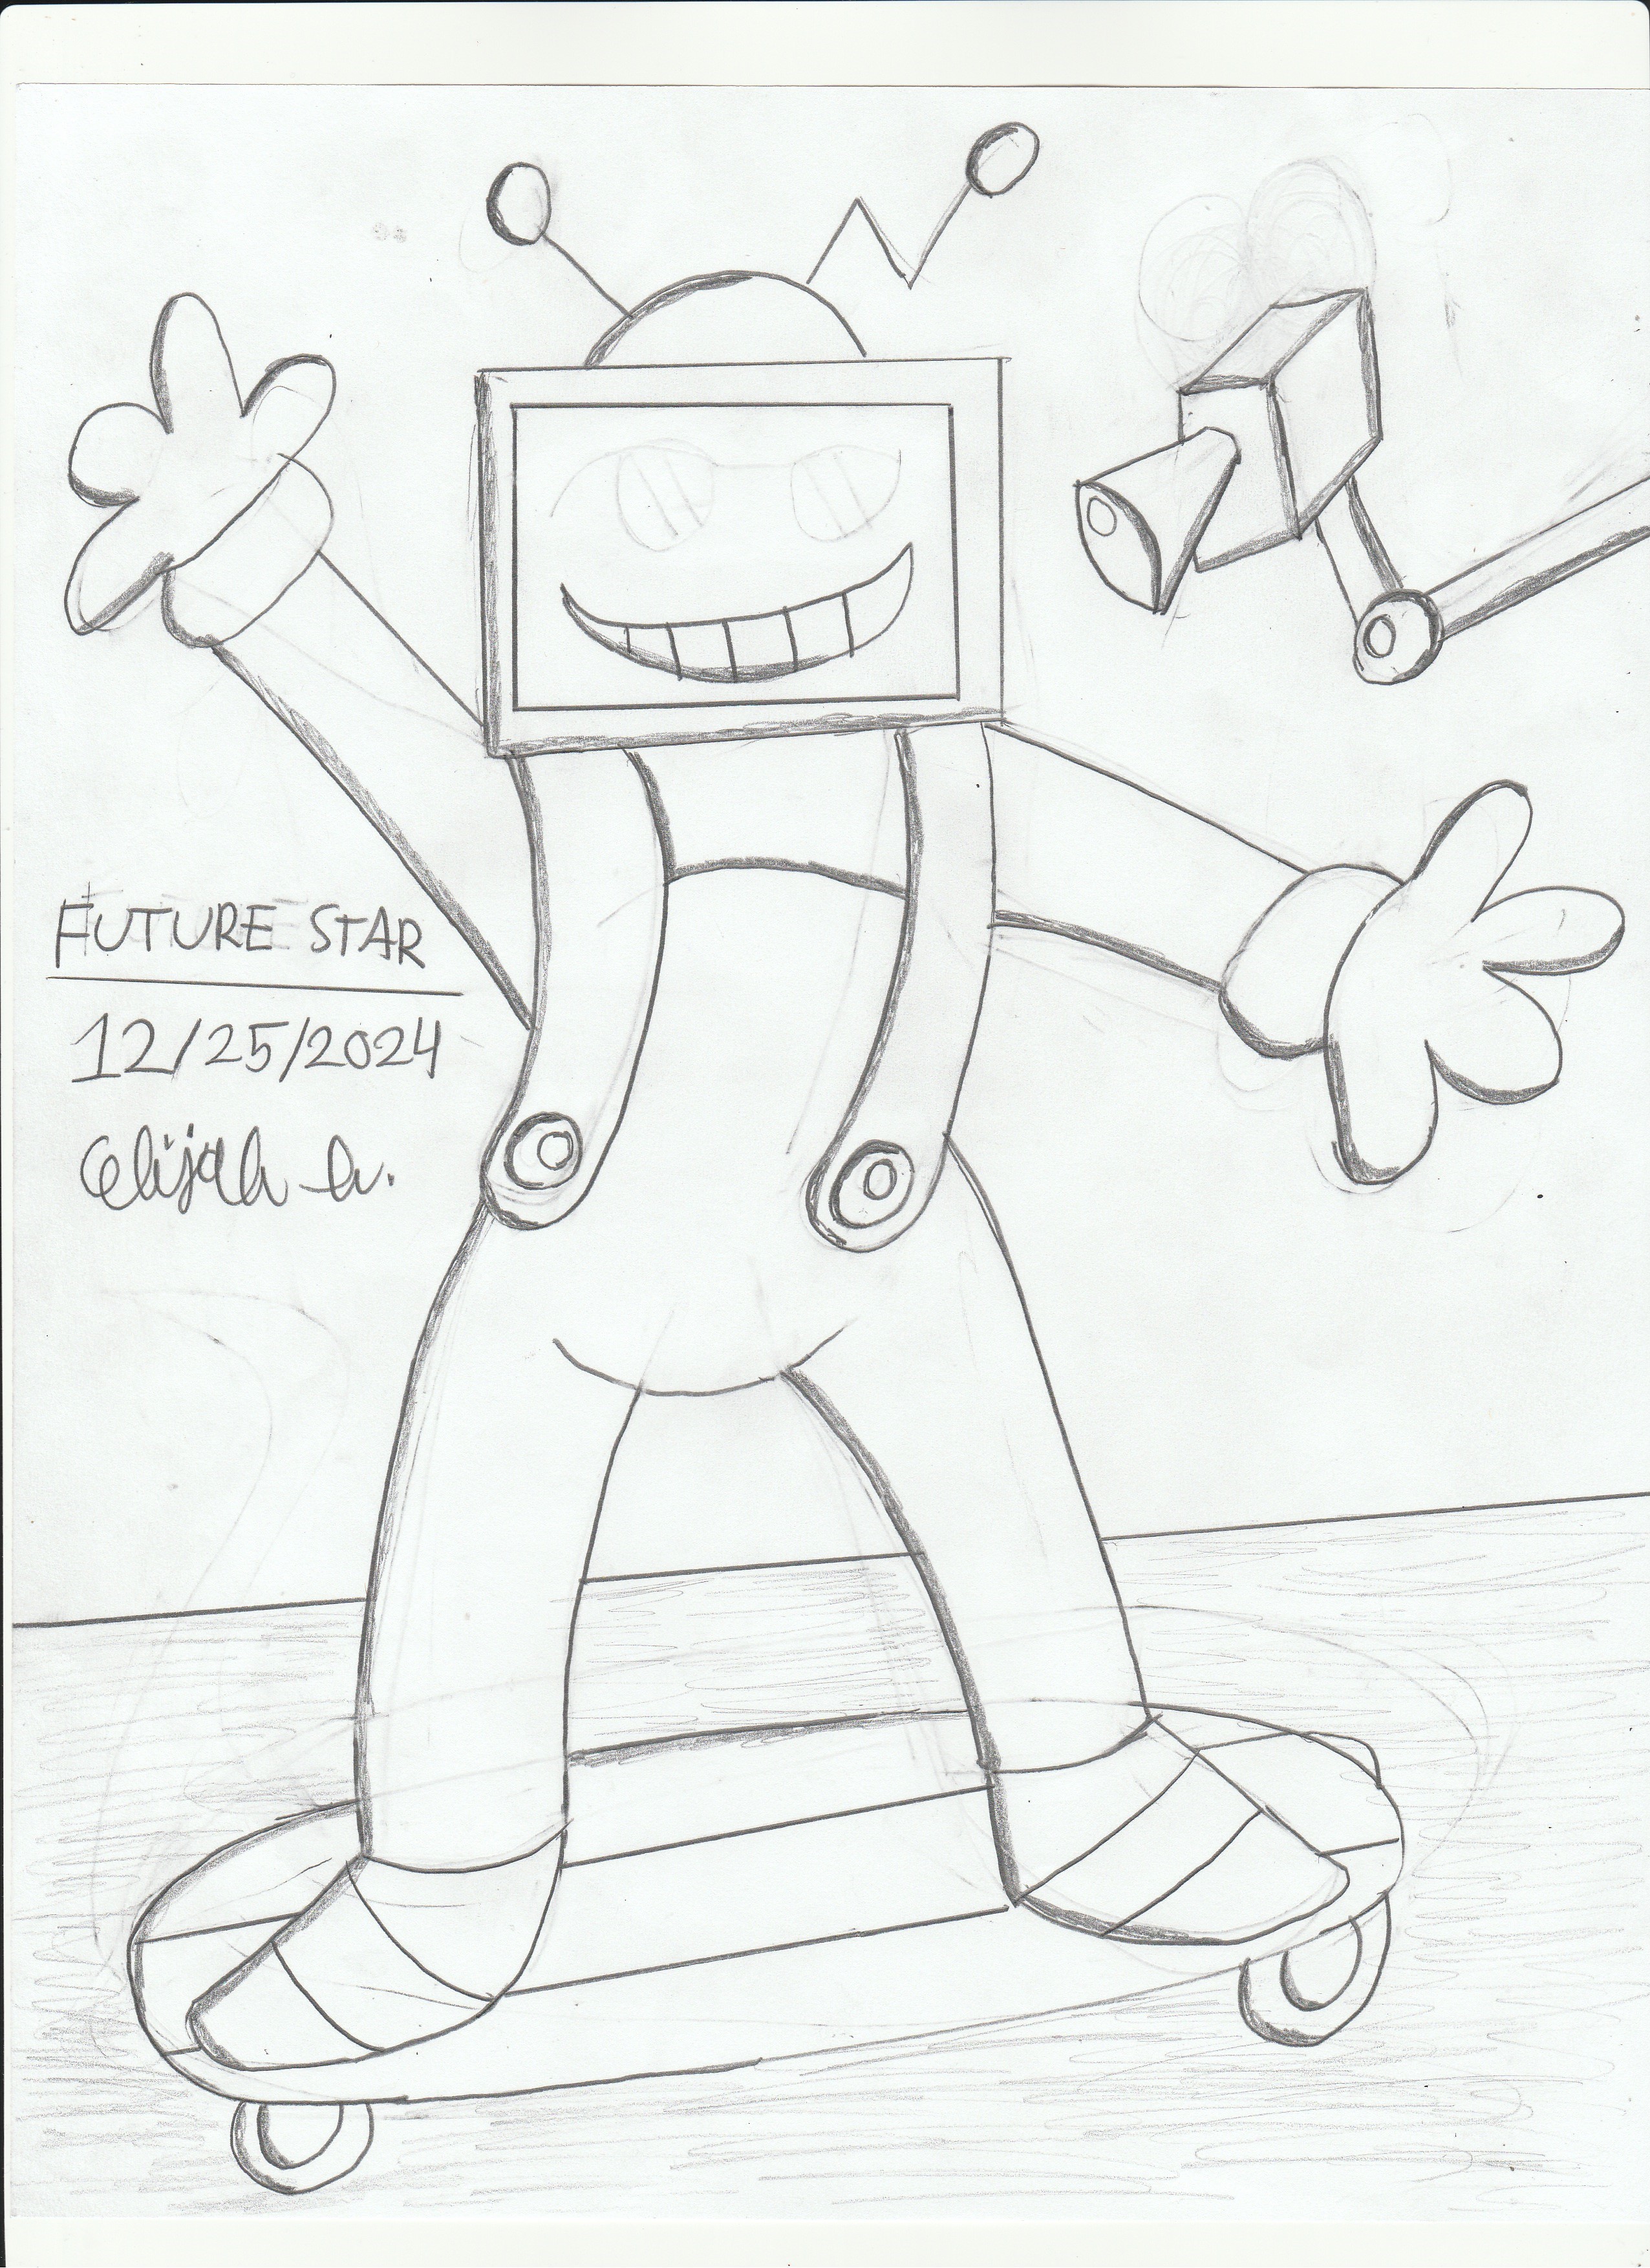 FUTURE STAR
12/25/2024
Elijah